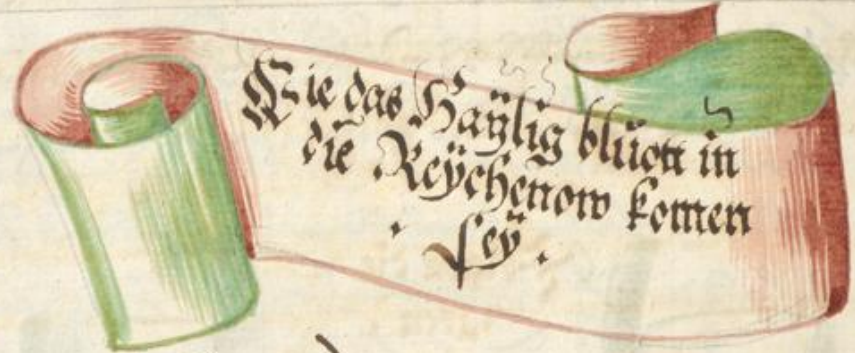 Wie das Haÿlig blůott in
die Reÿchenow komen
. seÿ .